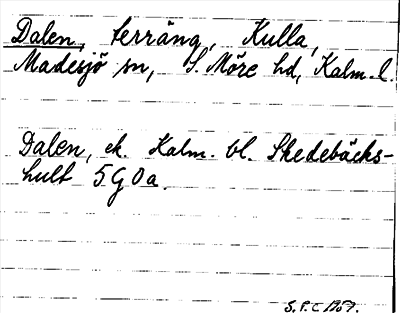 Dalen, terräng, Kulla,
Madesjö sn, S. Möre hd, Kalm. l.
Dalen, ek. Kalm. bl. Skedebäcks-
hult 5G0a.
S.P.C 1957.